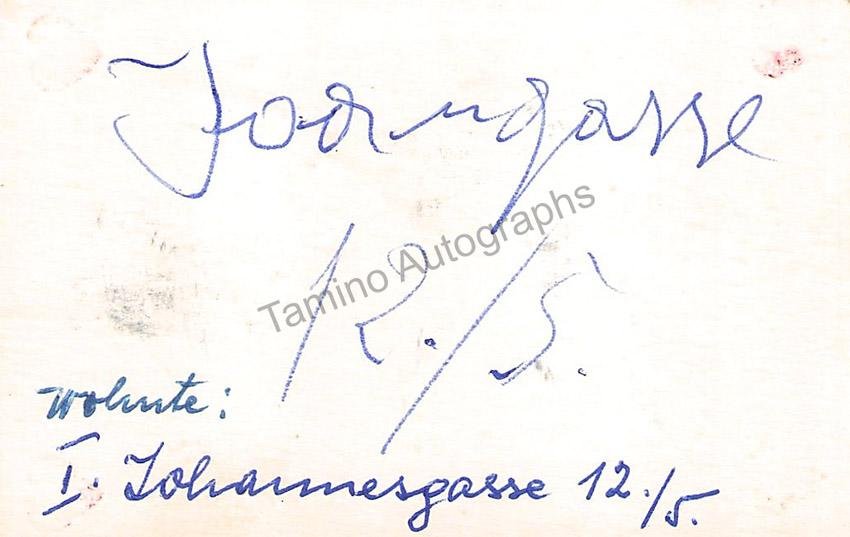 12./5.
Tamino Autographs
wohnte:
I. Johannesgasse 12./5.